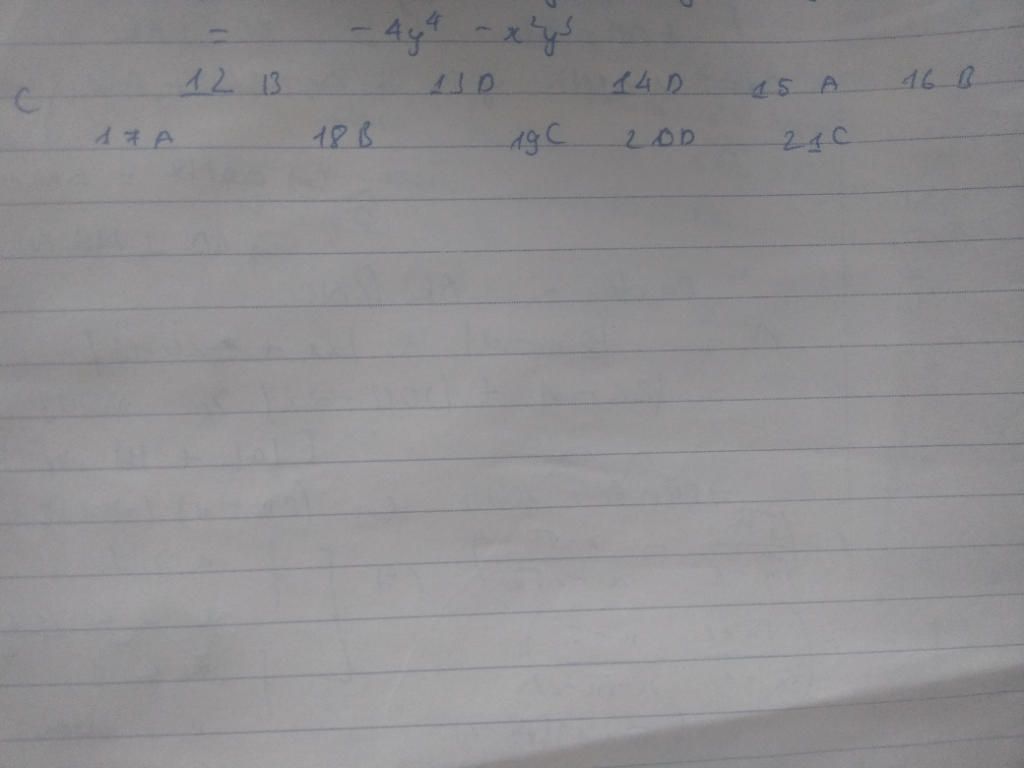 = - 4y⁴ - x²y³
C 12 B 13 D 14 D 15 A 16 B
17 A 18 B 19 C 20 D 21 C